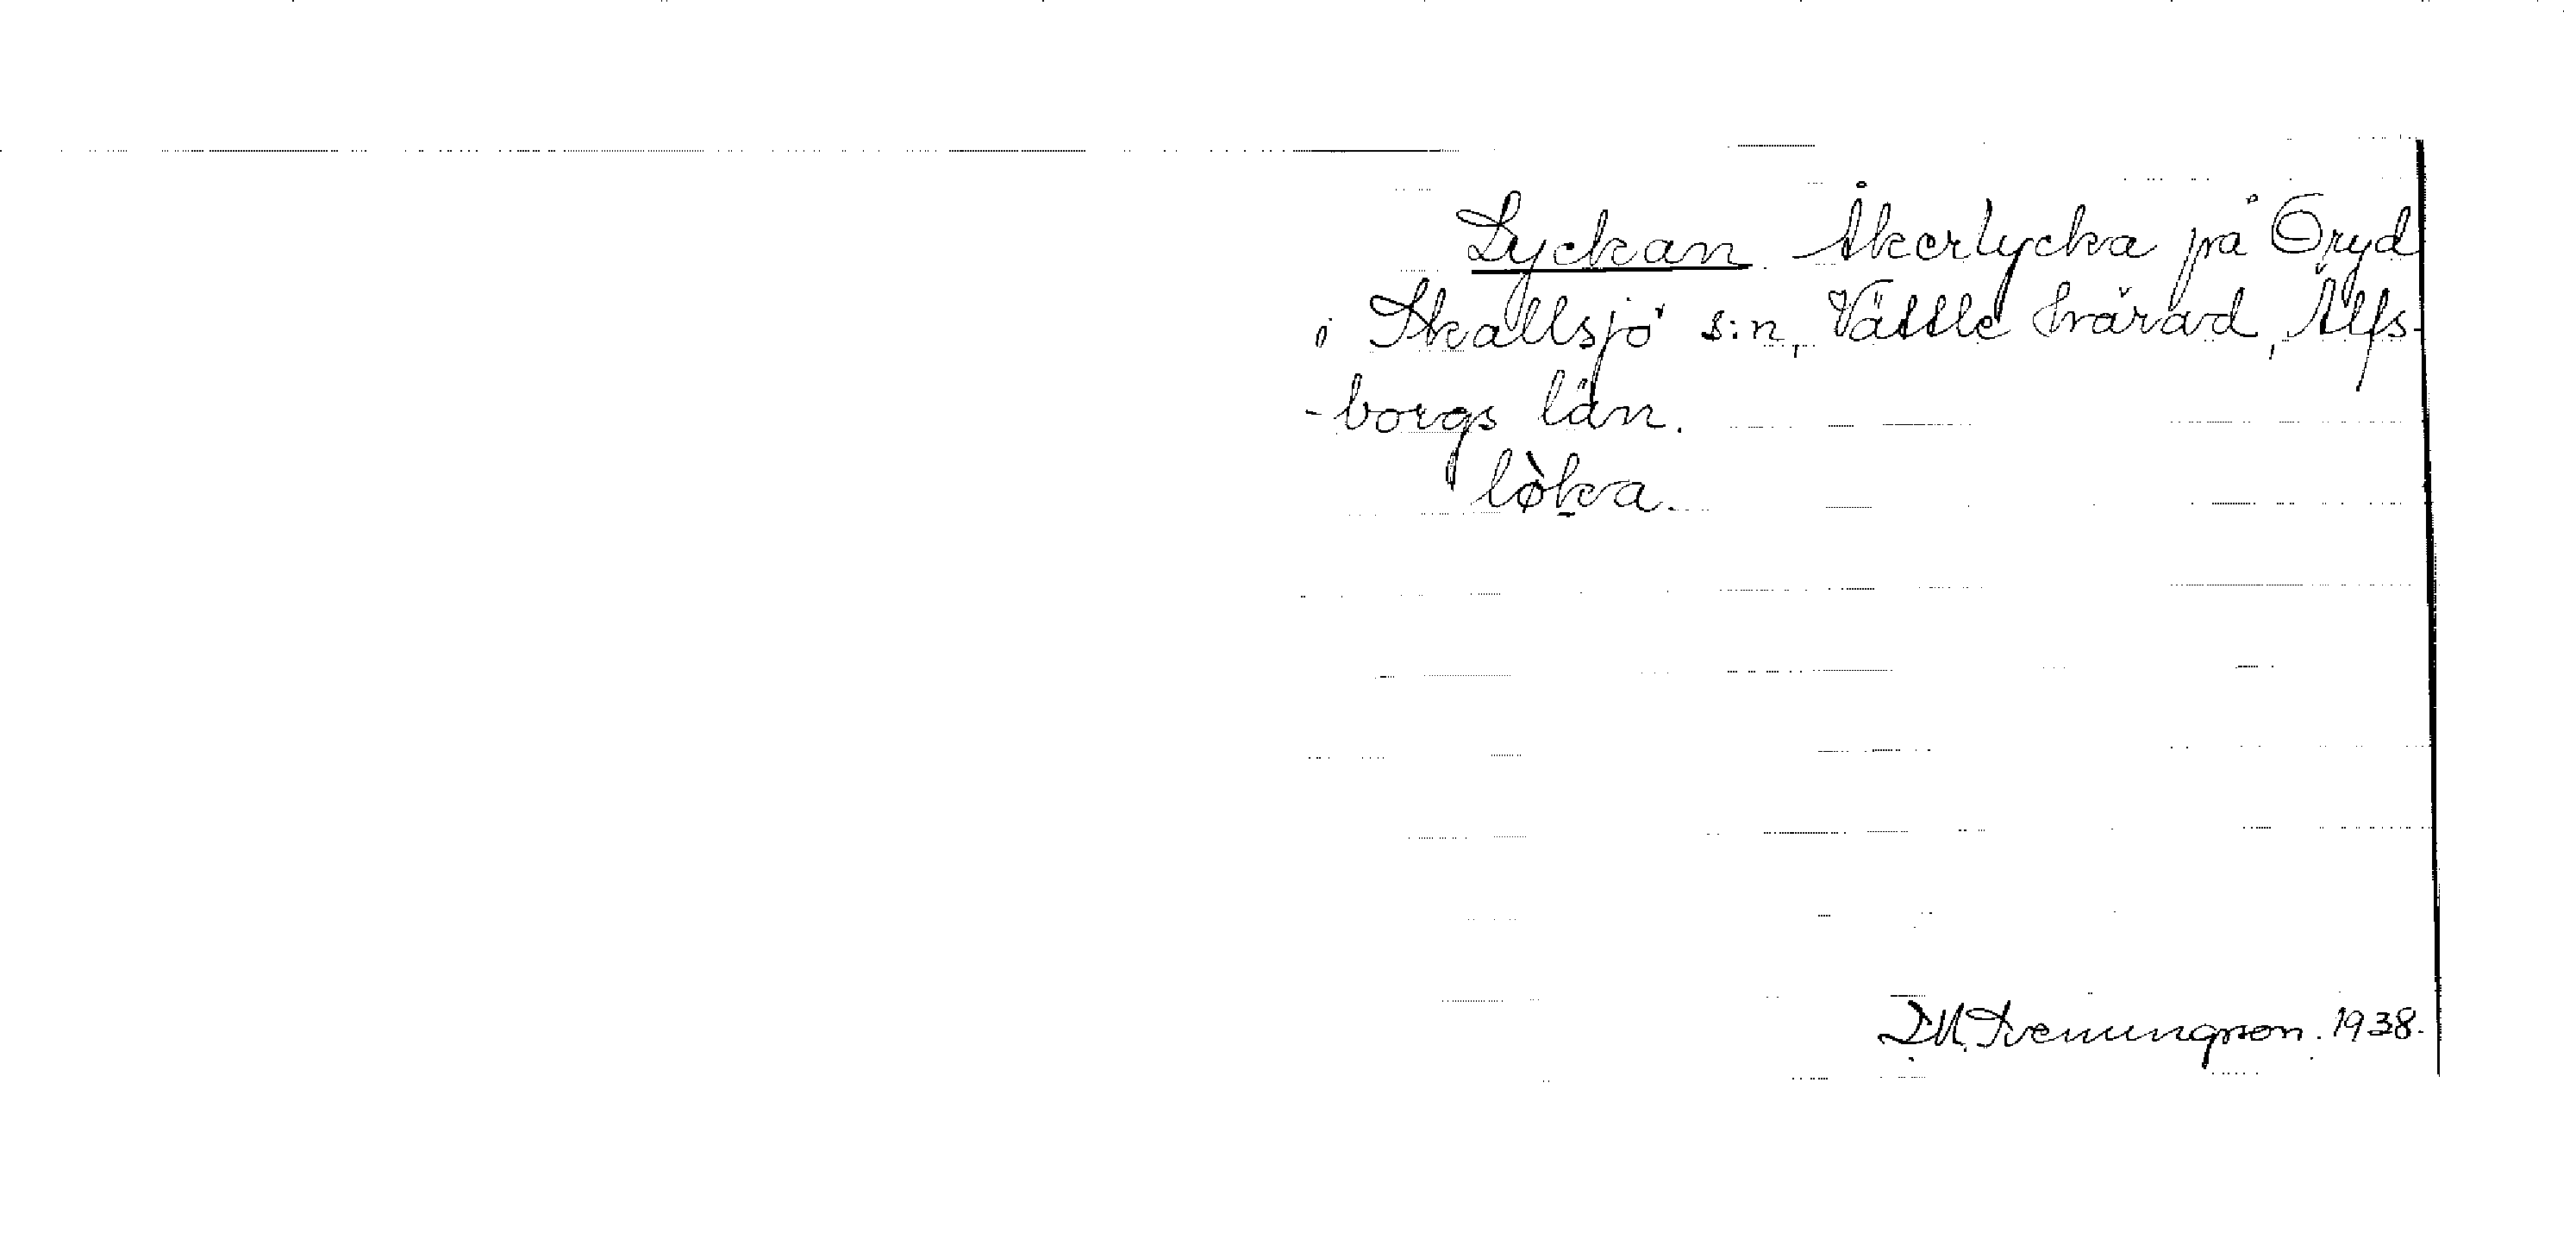 Lyckan. Åkerlycka på Öryd
i Skallsjö s:n, Vättle härad, Älfs-
-borgs län.
lø̀k̠a.
D.M. Svenungson. 1938.